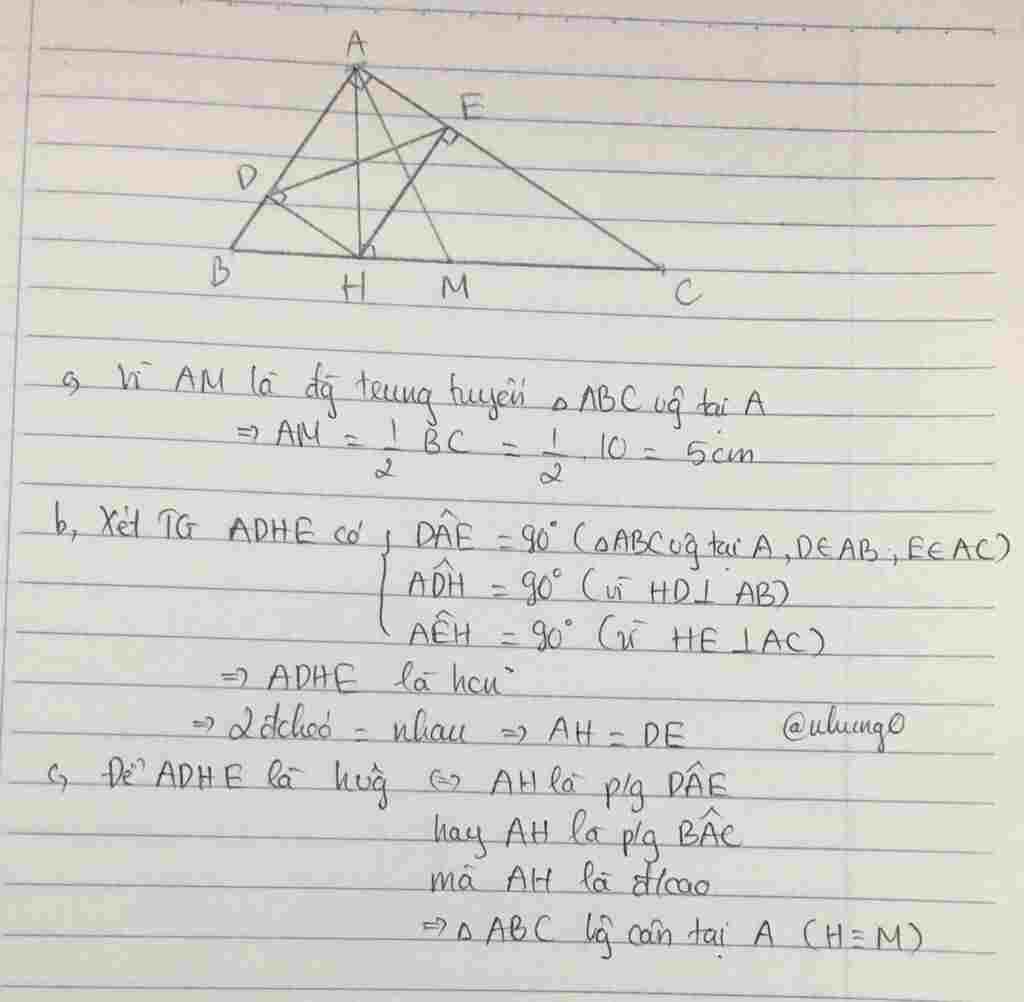 A
E
D
B
H
M
C
a, Vì AM là đg trung tuyến △ABC vg tại A
⇒ AM = 1/2 BC = 1/2 . 10 = 5cm
b, Xét TG ADHE có { DÂE = 90° (△ABC vg tại A, D∈AB, E∈AC)
AD̂H = 90° (vì HD⊥ AB)
AÊH = 90° (vì HE ⊥AC)
⇒ ADHE là hcn
⇒ 2 đchéo = nhau ⇒ AH = DE
c, Để ADHE là hvg ⇔ AH là p/g DÂE
hay AH là p/g BÂC
mà AH là đ/cao
⇒ △ABC vg cân tại A (H≡M)